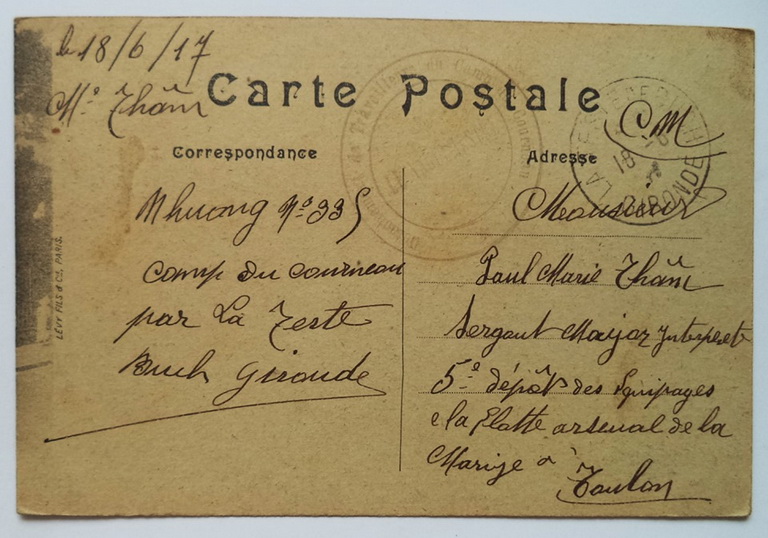 le 18/6/17
Mr Thâm
Carte Postale
CM
Correspondance
Adresse
LA TESTE DE BUCH
18 - 6
GIRONDE
Nhuong No 335
Camp du Courneau
par La Teste
Buch Gironde
Monsieur
Paul Marie Thâm
Sergent Major Interprete
5e dépôts des Equipages
de la Flotte arsenal de la
Marine à
Toulon
LÉVY FILS & Cie, PARIS.